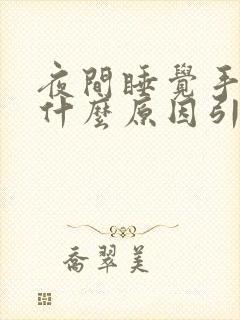 夜間睡覺手
什麼原因引
喬翠美